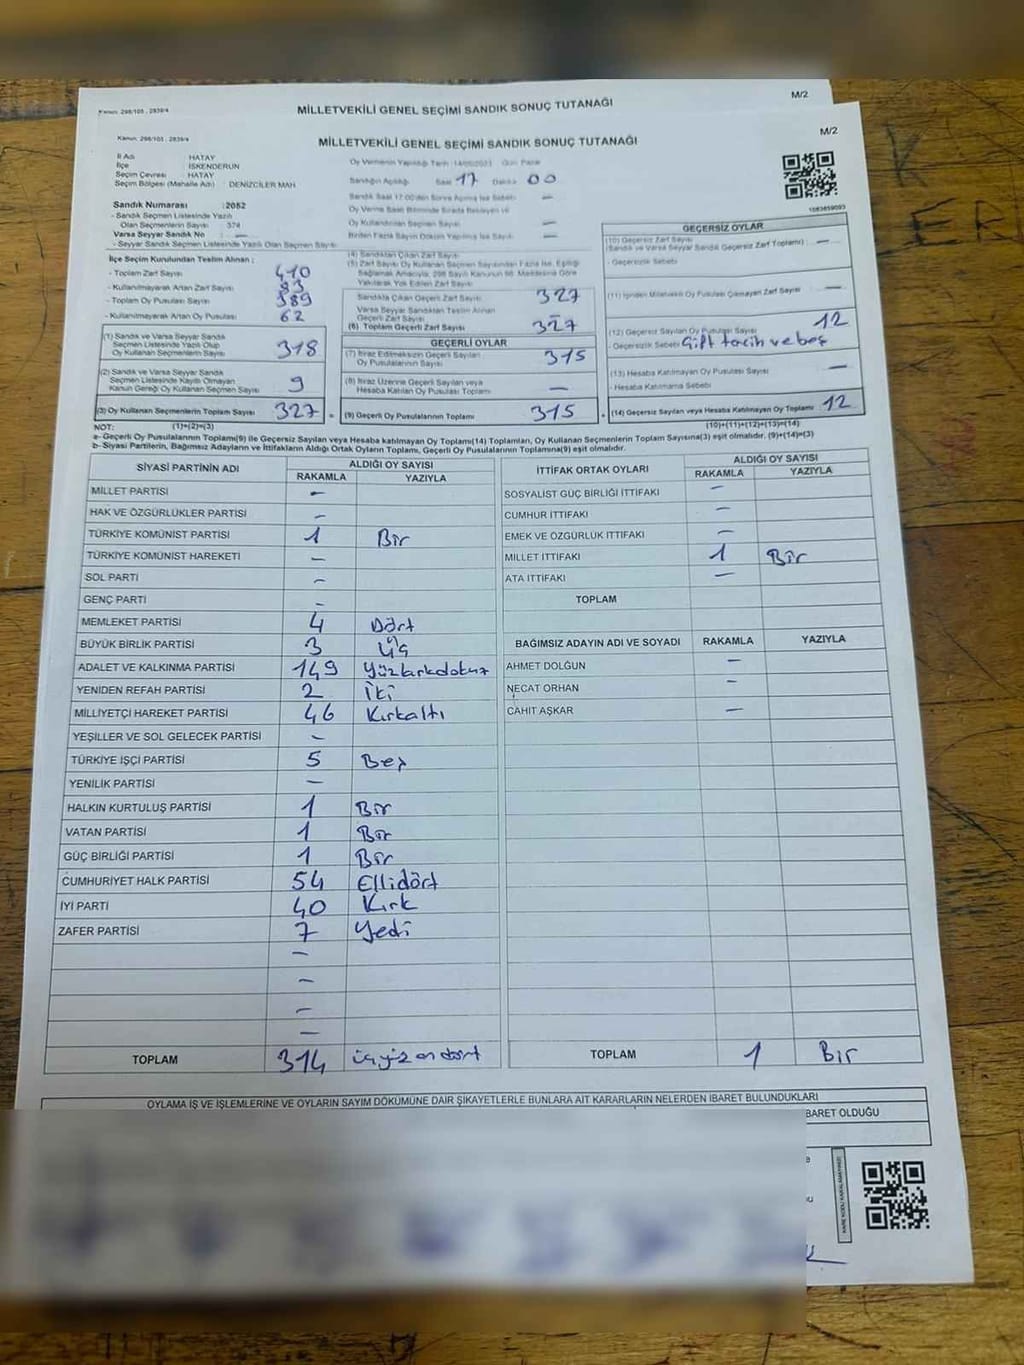 Kanun: 298/105 , 2839/4
MİLLETVEKİLİ GENEL SEÇİMİ SANDIK SONUÇ TUTANAĞI
M/2
Kanun: 298/105 , 2839/4
MİLLETVEKİLİ GENEL SEÇİMİ SANDIK SONUÇ TUTANAĞI
M/2
İl Adı HATAY
İlçe İSKENDERUN
Seçim Çevresi HATAY
Seçim Bölgesi (Mahalle Adı) DENİZCİLER MAH
Sandık Numarası :2052
- Sandık Seçmen Listesinde Yazılı
Olan Seçmenlerin Sayısı 374
Varsa Seyyar Sandık No : —
- Seyyar Sandık Seçmen Listesinde Yazılı Olan Seçmen Sayısı
Oy Vermenin Yapıldığı Tarih :14/05/2023 Gün Pazar
Sandığın Açıldığı Saat 17 Dakika 00
Sandık Saat 17:00'den Sonra Açılmış İse Sebebi —
Oy Verme Saati Bitiminde Sırada Bekleyen ve
Oy Kullandırılan Seçmen Sayısı —
Birden Fazla Sayım Döküm Yapılmış İse Sayısı —
İlçe Seçim Kurulundan Teslim Alınan :
- Toplam Zarf Sayısı 410
- Kullanılmayarak Artan Zarf Sayısı 83
- Toplam Oy Pusulası Sayısı 389
- Kullanılmayarak Artan Oy Pusulası 62
(1) Sandık ve Varsa Seyyar Sandık
Seçmen Listesinde Yazılı Olup
Oy Kullanan Seçmenlerin Sayısı 318
(2) Sandık ve Varsa Seyyar Sandık
Seçmen Listesinde Kayıtlı Olmayan
Kanun Gereği Oy Kullanan Seçmen Sayısı 9
(3) Oy Kullanan Seçmenlerin Toplam Sayısı 327
(1)+(2)=(3)
(4) Sandıktan Çıkan Zarf Sayısı
(5) Zarf Sayısı Oy Kullanan Seçmen Sayısından Fazla İse, Eşitliği
Sağlamak Amacıyla, 298 Sayılı Kanunun 98. Maddesine Göre
Yakılarak Yok Edilen Zarf Sayısı
Sandıkta Çıkan Geçerli Zarf Sayısı 327
Varsa Seyyar Sandıktan Teslim Alınan
Geçerli Zarf Sayısı
(6) Toplam Geçerli Zarf Sayısı 327
GEÇERLİ OYLAR
(7) İtiraz Edilmeksizin Geçerli Sayılan
Oy Pusulalarının Sayısı 315
(8) İtiraz Üzerine Geçerli Sayılan veya
Hesaba Katılan Oy Pusulası Toplamı —
(9) Geçerli Oy Pusulalarının Toplamı 315
1083859093
GEÇERSİZ OYLAR
(10) Geçersiz Zarf Sayısı
(Sandık ve Varsa Seyyar Sandık Geçersiz Zarf Toplamı) —
- Geçersizlik Sebebi
(11) İçinden Milletvekili Oy Pusulası Çıkmayan Zarf Sayısı —
(12) Geçersiz Sayılan Oy Pusulası Sayısı 12
- Geçersizlik Sebebi Çift tercih ve boş
(13) Hesaba Katılmayan Oy Pusulası Sayısı —
- Hesaba Katılmama Sebebi
(14) Geçersiz Sayılan veya Hesaba Katılmayan Oy Toplamı 12
(10)+(11)+(12)+(13)=(14)
NOT:
a- Geçerli Oy Pusulalarının Toplamı(9) ile Geçersiz Sayılan veya Hesaba katılmayan Oy Toplamı(14) Toplamları, Oy Kullanan Seçmenlerin Toplam Sayısına(3) eşit olmalıdır. (9)+(14)=(3)
b- Siyasi Partilerin, Bağımsız Adayların ve İttifakların Aldığı Ortak Oyların Toplamı, Geçerli Oy Pusulalarının Toplamına(9) eşit olmalıdır.
SİYASİ PARTİNİN ADI ALDIĞI OY SAYISI
RAKAMLA YAZIYLA
MİLLET PARTİSİ —
HAK VE ÖZGÜRLÜKLER PARTİSİ —
TÜRKİYE KOMÜNİST PARTİSİ 1 Bir
TÜRKİYE KOMÜNİST HAREKETİ —
SOL PARTİ —
GENÇ PARTİ —
MEMLEKET PARTİSİ 4 Dört
BÜYÜK BİRLİK PARTİSİ 3 Üç
ADALET VE KALKINMA PARTİSİ 149 Yüzkırkdokuz
YENİDEN REFAH PARTİSİ 2 İki
MİLLİYETÇİ HAREKET PARTİSİ 46 Kırkaltı
YEŞİLLER VE SOL GELECEK PARTİSİ —
TÜRKİYE İŞÇİ PARTİSİ 5 Beş
YENİLİK PARTİSİ —
HALKIN KURTULUŞ PARTİSİ 1 Bir
VATAN PARTİSİ 1 Bir
GÜÇ BİRLİĞİ PARTİSİ 1 Bir
CUMHURİYET HALK PARTİSİ 54 Ellidört
İYİ PARTİ 40 Kırk
ZAFER PARTİSİ 7 Yedi
—
—
—
—
TOPLAM 314 üçyüz on dört
İTTİFAK ORTAK OYLARI ALDIĞI OY SAYISI
RAKAMLA YAZIYLA
SOSYALİST GÜÇ BİRLİĞİ İTTİFAKI —
CUMHUR İTTİFAKI —
EMEK VE ÖZGÜRLÜK İTTİFAKI —
MİLLET İTTİFAKI 1 Bir
ATA İTTİFAKI —
TOPLAM
BAĞIMSIZ ADAYIN ADI VE SOYADI RAKAMLA YAZIYLA
AHMET DOLĞUN —
NECAT ORHAN —
CAHİT AŞKAR —
TOPLAM 1 Bir
OYLAMA İŞ VE İŞLEMLERİNE VE OYLARIN SAYIM DÖKÜMÜNE DAİR ŞİKAYETLERLE BUNLARA AİT KARARLARIN NELERDEN İBARET BULUNDUKLARI
BARET OLDUĞU